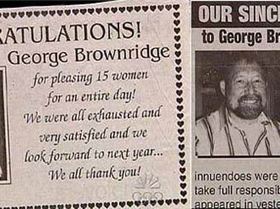 RATULATIONS!
George Brownridge
for pleasing 15 women
for an entire day!
We were all exhausted and
very satisfied and we
look forward to next year...
We all thank you!
OUR SINC
to George Br
innuendoes were
take full responsib
appeared in yeste